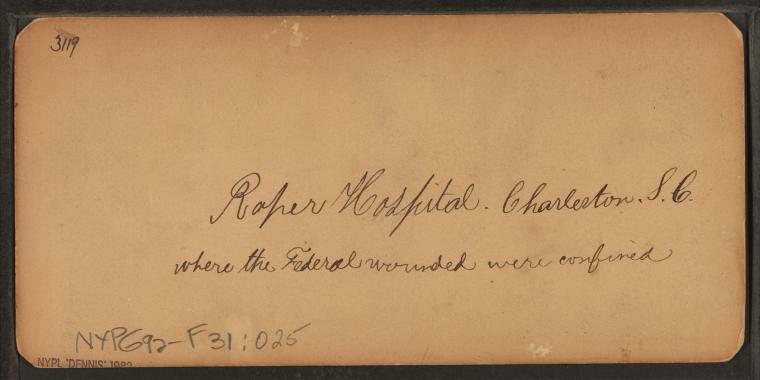 3119
Roper Hospital. Charleston. S. C.
where the Federal wounded were confined
NYPG92-F31:025
NYPL 'DENNIS' 1982